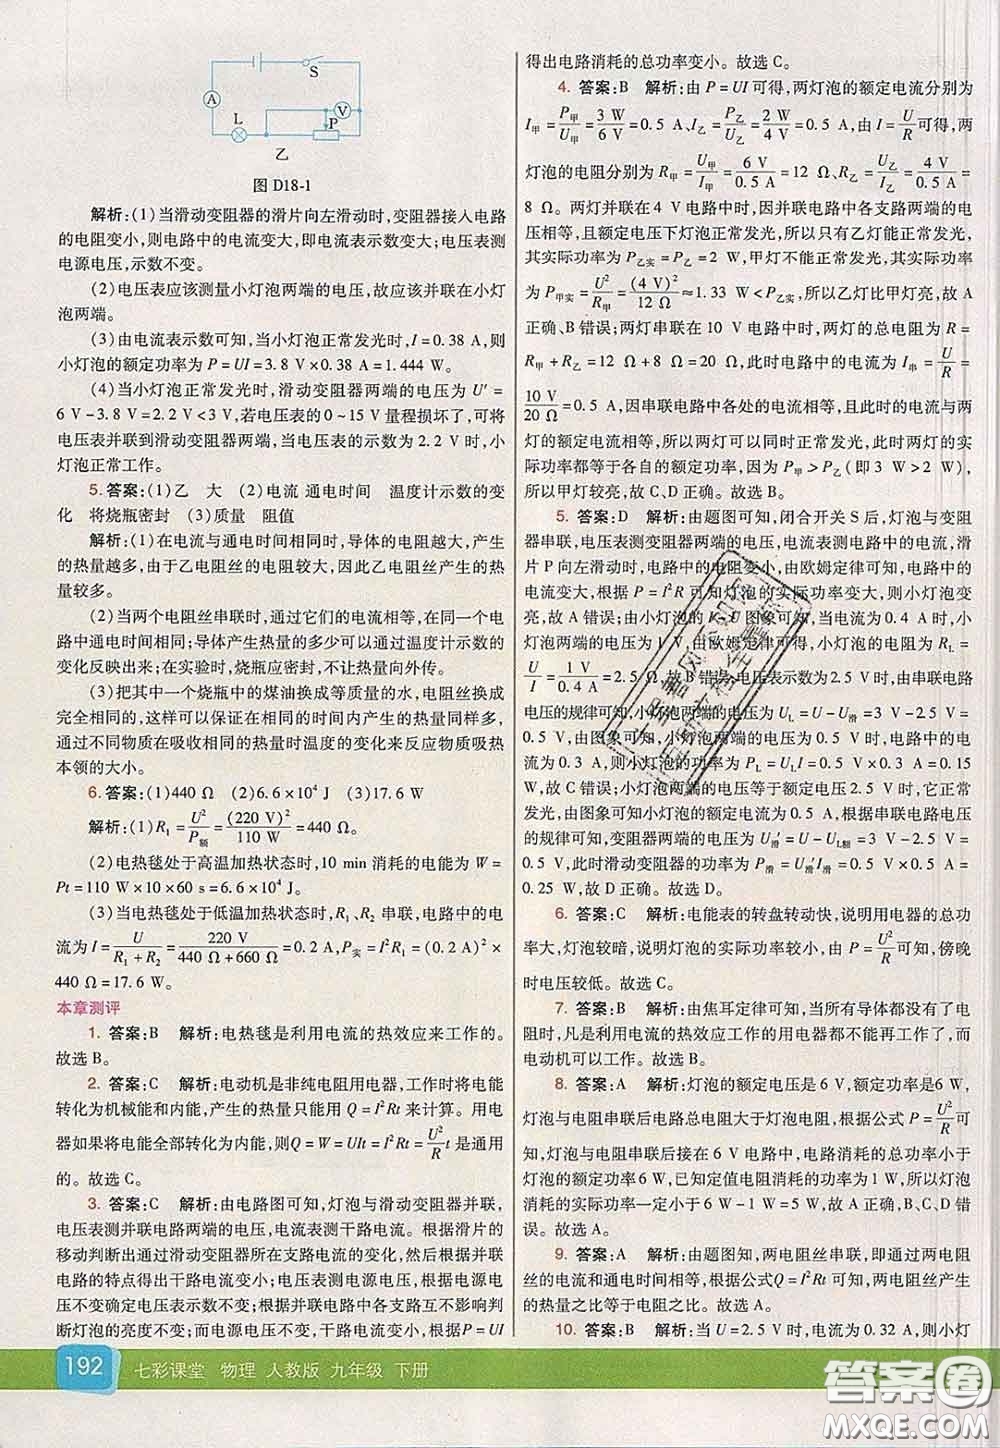 S
A
V
L
P
乙
图 D18-1
解析:(1)当滑动变阻器的滑片向左滑动时,变阻器接入电路
的电阻变小,则电路中的电流变大,即电流表示数变大;电压表测
电源电压,示数不变。
(2)电压表应该测量小灯泡两端的电压,故应该并联在小灯
泡两端。
(3)由电流表示数可知,当小灯泡正常发光时,I=0.38 A,则
小灯泡的额定功率为 P=UI=3.8 V×0.38 A=1.444 W。
(4)当小灯泡正常发光时,滑动变阻器两端的电压为 U′=
6 V-3.8 V=2.2 V<3 V,若电压表的 0~15 V 量程损坏了,可将
电压表并联到滑动变阻器两端,当电压表的示数为 2.2 V 时,小
灯泡正常工作。
5. 答案:(1)乙 大 (2)电流 通电时间 温度计示数的变
化 将烧瓶密封 (3)质量 阻值
解析:(1)在电流与通电时间相同时,导体的电阻越大,产生
的热量越多,由于乙电阻丝的电阻较大,因此乙电阻丝产生的热
量较多。
(2)当两个电阻丝串联时,通过它们的电流相等,在同一个电
路中通电时间相同;导体产生热量的多少可以通过温度计示数的
变化反映出来;在实验时,烧瓶应密封,不让热量向外传。
(3)把其中一个烧瓶中的煤油换成等质量的水,电阻丝换成
完全相同的,这样可以保证在相同的时间内产生的热量同样多,
通过不同物质在吸收相同的热量时温度的变化来反应物质吸热
本领的大小。
6. 答案:(1)440 Ω (2)6.6×10⁴ J (3)17.6 W
解析:(1)R₁=U²/P额=(220 V)²/110 W=440 Ω。
(2)电热毯处于高温加热状态时,10 min 消耗的电能为 W=
Pt=110 W×10×60 s=6.6×10⁴ J。
(3)当电热毯处于低温加热状态时,R₁、R₂ 串联,电路中的电
流为 I=U/(R₁+R₂)=220 V/(440 Ω+660 Ω)=0.2 A,P实=I²R₁=(0.2 A)²×
440 Ω=17.6 W。
本章测评
1. 答案:B 解析:电热毯是利用电流的热效应来工作的。
故选 B。
2. 答案:C 解析:电动机是非纯电阻用电器,工作时将电能
转化为机械能和内能,产生的热量只能用 Q=I²Rt 来计算。用电
器如果将电能全部转化为内能,则Q=W=UIt=I²Rt=U²/R t 是通用
的。故选 C。
3. 答案:C 解析:由电路图可知,灯泡与滑动变阻器并联,
电压表测并联电路两端的电压,电流表测干路电流。根据滑片的
移动判断出通过滑动变阻器所在支路电流的变化,然后根据并联
电路的特点得出干路电流变小;电压表测电源电压,根据电源电
压不变确定电压表示数不变;根据并联电路中各支路互不影响判
断灯泡的亮度不变;而电源电压不变,干路电流变小,根据 P=UI
得出电路消耗的总功率变小。故选 C。
4. 答案:B 解析:由 P=UI 可得,两灯泡的额定电流分别为
I甲=P甲/U甲=3 W/6 V=0.5 A、I乙=P乙/U乙=2 W/4 V=0.5 A,由 I=U/R可得,两
灯泡的电阻分别为 R甲=U甲/I甲=6 V/0.5 A=12 Ω、R乙=U乙/I乙=4 V/0.5 A=
8 Ω。两灯并联在 4 V 电路中时,因并联电路中各支路两端的电
压相等,且额定电压下灯泡正常发光,所以只有乙灯能正常发光,
其实际功率为 P乙实=P乙=2 W,甲灯不能正常发光,其实际功率
为 P甲实=U²/R甲=(4 V)²/12 Ω≈1.33 W<P乙实,所以乙灯比甲灯亮,故 A
正确、B 错误;两灯串联在 10 V 电路中时,两灯的总电阻为 R=
R甲+R乙=12 Ω+8 Ω=20 Ω,此时电路中的电流为 I串=U/R=
10 V/20 Ω=0.5 A,因串联电路中各处的电流相等,且此时的电流与两
灯的额定电流相等,所以两灯可以同时正常发光,此时两灯的实
际功率都等于各自的额定功率,因为 P甲>P乙(即 3 W>2 W),
所以甲灯较亮,故 C、D 正确。故选 B。
5. 答案:D 解析:由题图可知,闭合开关 S 后,灯泡与变阻
器串联,电压表测变阻器两端的电压,电流表测电路中的电流,滑
片 P 向左滑动时,电路中的电阻变小,由欧姆定律可知,电路中的
电流变大,根据 P=I²R 可知灯泡的实际功率变大,则小灯泡变
亮,故 A 错误;由小灯泡的 I-U 图象可知,当电流为 0.4 A 时,小
灯泡两端的电压为 1 V,由欧姆定律可知,小灯泡的电阻为 R_L=
U/I=1 V/0.4 A=2.5 Ω,故 B 错误;电压表示数为 2.5 V 时,由串联电路
电压的规律可知,小灯泡两端的电压为 U_L=U-U滑=3 V-2.5 V=
0.5 V,由图象可知,小灯泡两端的电压为 0.5 V 时,通过的电流
为 0.3 A,则小灯泡的功率为 P_L=U_LI=0.5 V×0.3 A=0.15
W,故 C 错误;小灯泡两端的电压等于额定电压 2.5 V 时,它正常
发光,由图象可知小灯泡的额定电流为 0.5 A,根据串联电路电压
的规律可知,变阻器两端的电压为 U滑′=U-U_L额=3 V-2.5 V=
0.5 V,此时滑动变阻器的功率为 P滑=U滑′I滑=0.5 V×0.5 A=
0.25 W,故 D 正确。故选 D。
6. 答案:C 解析:电能表的转盘转动快,说明用电器的总功
率大,灯泡较暗,说明灯泡的实际功率较小,由 P=U²/R可知,傍晚
时电压较低。故选 C。
7. 答案:D 解析:由焦耳定律可知,当所有导体都没有了电
阻时,凡是利用电流的热效应工作的用电器都不能再工作了,而
电动机可以工作。故选 D。
8. 答案:A 解析:灯泡的额定电压是 6 V,额定功率是 6 W,
灯泡与电阻串联后电路总电阻大于灯泡电阻,根据公式 P=U²/R可
知,灯泡与电阻串联后接在 6 V 电路中,电路消耗的总功率小于
灯泡的额定功率 6 W,已知定值电阻消耗的功率为 1 W,所以灯泡
消耗的实际功率一定小于 6 W-1 W=5 W,故 A 正确,B、C、D 错
误。故选 A。
9. 答案:A 解析:由题图知,两电阻丝串联,即通过两电阻
丝的电流和通电时间相等,根据公式Q=I²Rt 可知,两电阻丝产生
的热量之比等于电阻之比。故选 A。
10. 答案:B 解析:当 U=2.5 V 时,电流为 0.32 A,则小灯
192 七彩课堂 物理 人教版 九年级 下册
答案圈
MXQE.COM